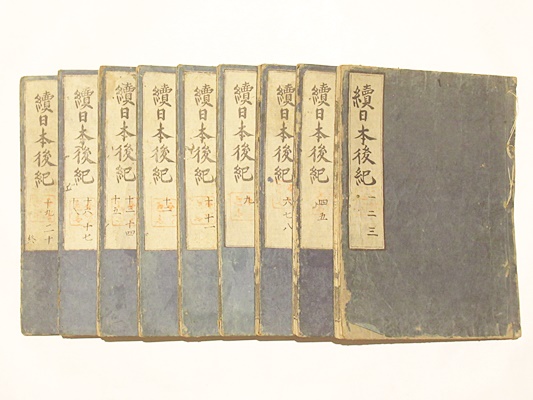 續日本後紀 一二三
續日本後紀 四五
續日本後紀 六七八
續日本後紀 九
續日本後紀 十 十一
續日本後紀 十二
續日本後紀 十三 十四 十五
續日本後紀 十六 十七 十八
續日本後紀 十九 二十 終